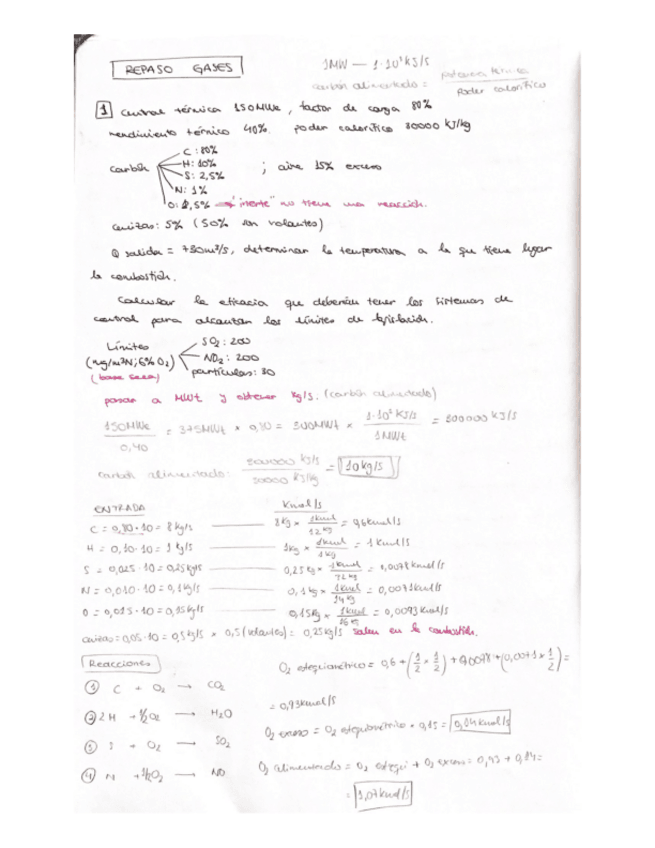 REPASO GASES
1MW — 1·10³ KJ/s
carbón alimentado = potencia térmica / Poder calorífico
1 Central térmica 150MWe, factor de carga 80%
rendimiento térmico 40%. poder calorífico 30000 KJ/kg
C: 80%
H: 10%
carbón S: 2,5% ; aire 15% exceso
N: 1%
O: 1,5% → "inerte" no tiene una reacción.
cenizas: 5% (50% son volantes)
Q salida = 730m³/s, determinar la temperatura a la que tiene lugar
la combustión.
Calcular la eficacia que deberán tener los sistemas de
control para alcanzar los límites de legislación.
Límites SO₂: 200
(mg/m³N; 6% O₂) NO₂: 200
(base seca) partículas: 30
pasar a MWt y obtener kg/s. (carbón alimentado)
150MWe / 0,40 = 375MWt × 0,80 = 300MWt × 1·10³ KJ/s / 1MWt = 300000 KJ/s
carbón alimentado: 300000 KJ/s / 30000 KJ/kg = 10kg/s
ENTRADA Kmol/s
C = 0,80·10 = 8 kg/s — 8kg × 1kmol / 12kg = 0,6kmol/s
H = 0,10·10 = 1 kg/s — 1kg × 1kmol / 1kg = 1 Kmol/s
S = 0,025·10 = 0,25kg/s — 0,25kg × 1kmol / 32 kg = 0,0078 Kmol/s
N = 0,010·10 = 0,1kg/s — 0,1kg × 1kmol / 14kg = 0,0071kmol/s
O = 0,015·10 = 0,15kg/s — 0,15kg × 1kmol / 16kg = 0,0093 Kmol/s
cenizas: 0,05·10 = 0,5kg/s × 0,5 (volantes) = 0,25kg/s salen en la combustión.
Reacciones
O₂ estequiométrico = 0,6 + (1/2 × 1/2) + 0,0078 + (0,0071 × 1/2) =
① C + O₂ → CO₂
= 0,93kmol/s
② 2H + ½O₂ → H₂O
O₂ exceso = O₂ estequiométrico · 0,15 = 0,14kmol/s
③ S + O₂ → SO₂
④ N + ½O₂ → NO
O₂ alimentado = O₂ estequi + O₂ exceso = 0,93 + 0,14 =
= 1,07kmol/s